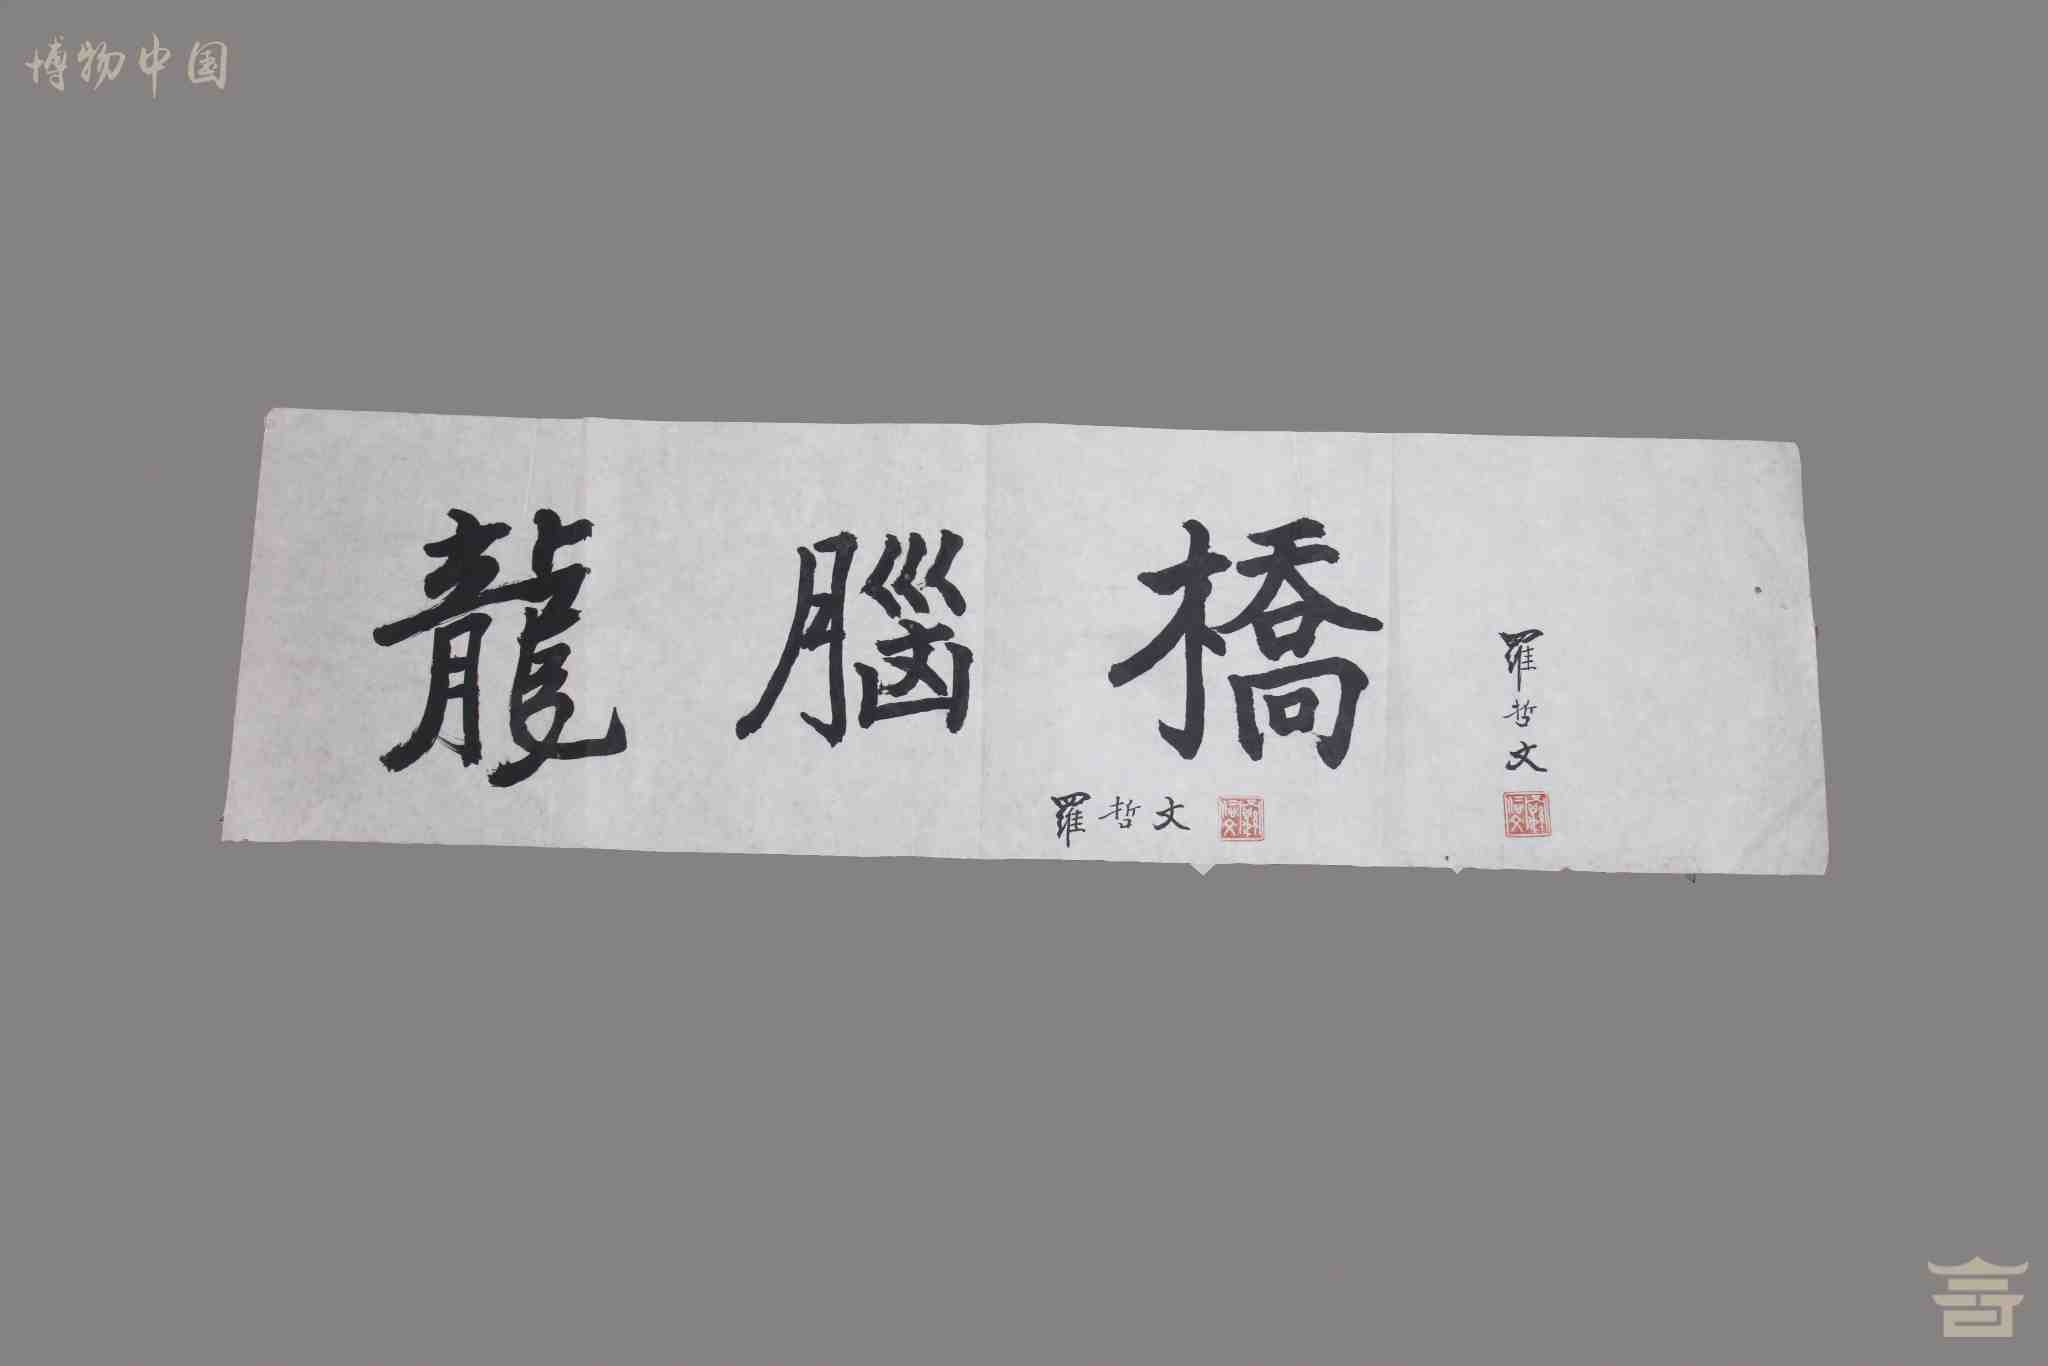 博物中国
龍腦橋
羅哲文
羅哲文